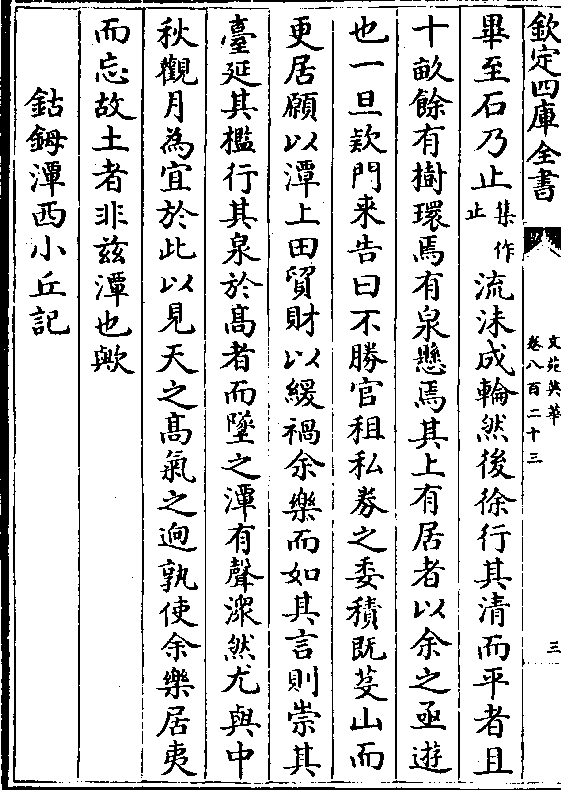 欽定四庫全書
文苑英華
卷八百二十三
三
畢至石乃止集作止流沫成輪然後徐行其清而平者且
十畝餘有樹環焉有泉懸焉其上有居者以余之亟遊
也一旦欵門来告曰不勝官租私券之委積既芟山而
更居願以潭上田貿財以緩禍余樂而如其言則崇其
臺延其檻行其泉於髙者而墜之潭有聲潀然尤與中
秋觀月為宜於此以見天之髙氣之逈孰使余樂居夷
而忘故土者非兹潭也歟
鈷鉧潭西小丘記